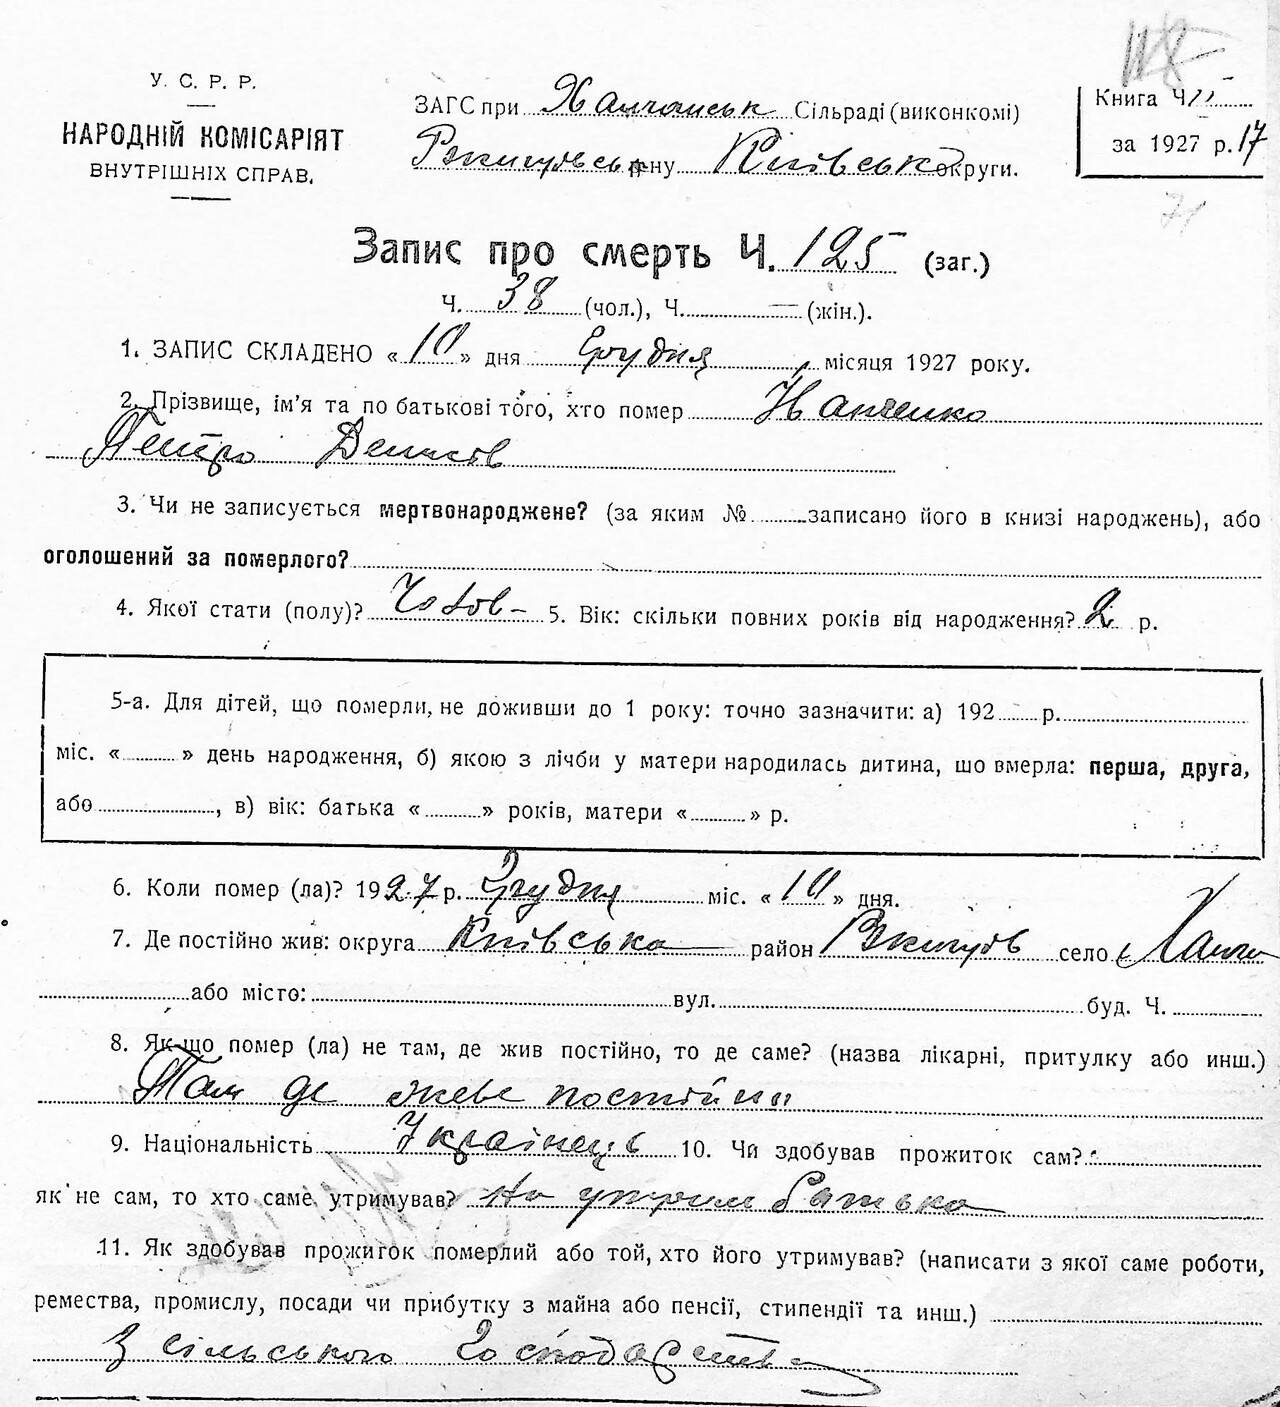 У. С. Р. Р.
НАРОДНІЙ КОМІСАРІЯТ
ВНУТРІШНІХ СПРАВ.
ЗАГС при Сільраді (виконкомі)
Ржищівськ р-ну Київськ округи.
Книга Ч. III
за 1927 р. 17
71
Запис про смерть Ч. 125 (заг.)
Ч. 38 (чол.), Ч. — (жін.).
1. ЗАПИС СКЛАДЕНО «10» дня Грудня місяця 1927 року.
2. Прізвище, ім'я та по батькові того, хто помер
Петро Денисов
3. Чи не записується мертвонароджене? (за яким № записано його в книзі народжень), або
оголошений за померлого?
4. Якої стати (полу)? Чолов– 5. Вік: скільки повних років від народження? 2 р.
5-а. Для дітей, що померли, не доживши до 1 року: точно зазначити: а) 192 р.
міс. « » день народження, б) якою з лічби у матери народилась дитина, що вмерла: перша, друга,
або , в) вік: батька « » років, матери « » р.
6. Коли помер (ла)? 1927 р. Грудня міс. «10» дня.
7. Де постійно жив: округа Київська район Ржищів село
або місто: вул. буд. Ч.
8. Якщо помер (ла) не там, де жив постійно, то де саме? (назва лікарні, притулку або инш.)
Там де живе постійно
9. Національність Українець 10. Чи здобував прожиток сам?
як не сам, то хто саме утримував? На утрим батька
11. Як здобував прожиток померлий або той, хто його утримував? (написати з якої саме роботи,
ремества, промислу, посади чи прибутку з майна або пенсії, стипендії та инш.)
З сільського господарства